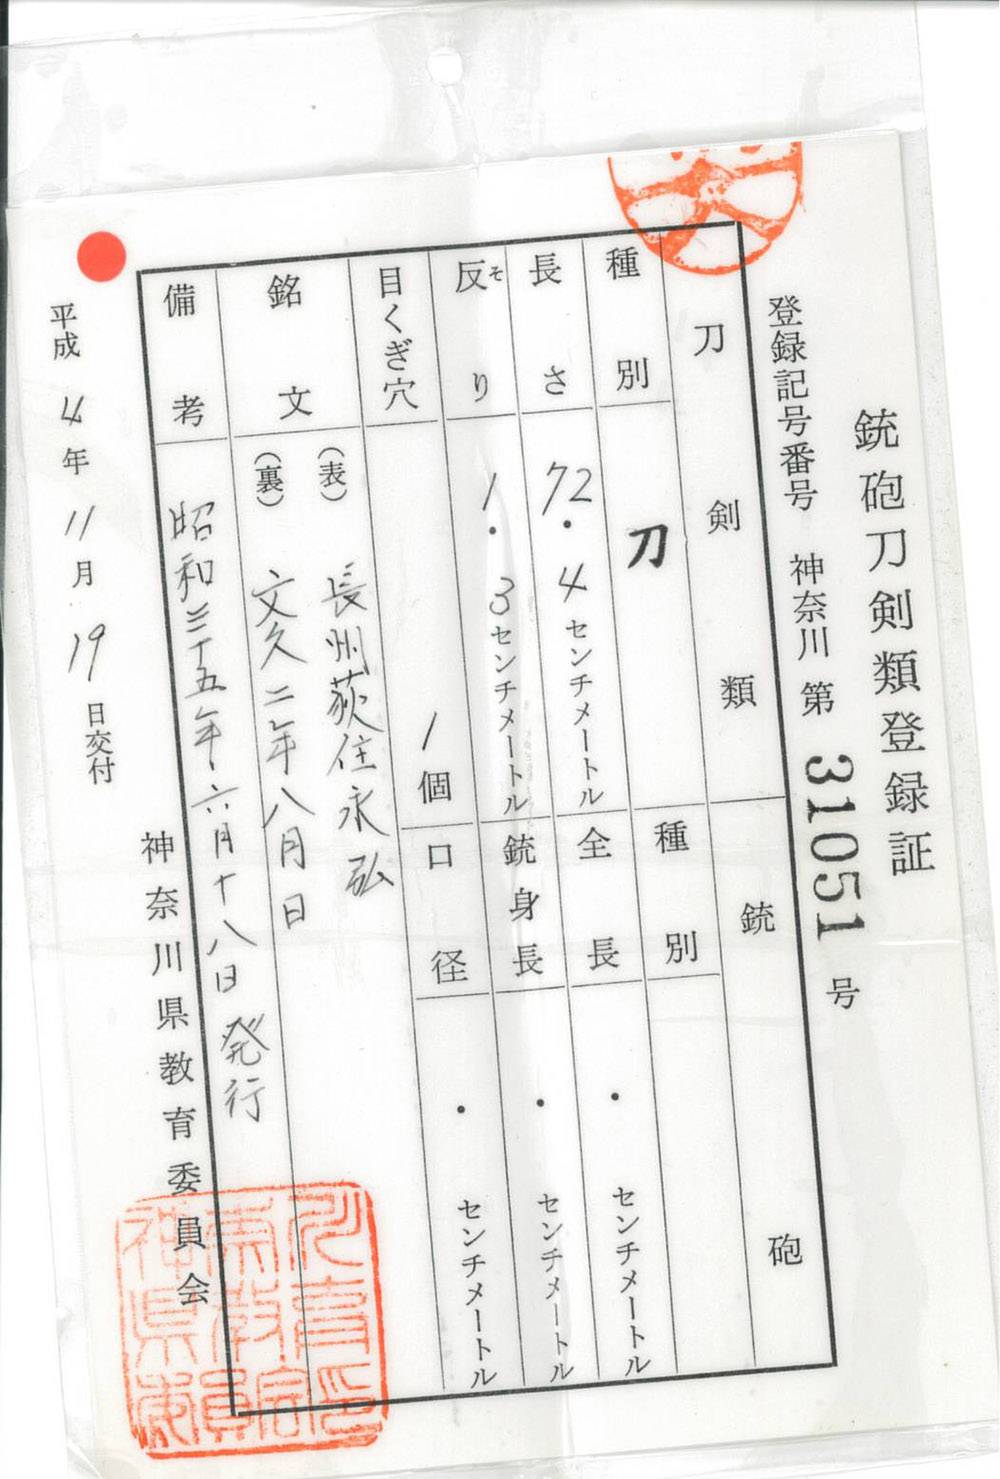 銃砲刀剣類登録証
登録記号番号 神奈川 第 31051 号
刀剣類
種別 刀
長さ 72.4センチメートル
反り 1.3センチメートル
そ
目くぎ穴 1個
銘文
(表) 長州荻住永弘
(裏) 文久二年八月日
備考 昭和三十五年六月十八日発行
銃砲
種別
全長 ・ センチメートル
銃身長 ・ センチメートル
口径 ・ センチメートル
平成 4年 11月 19日交付
神奈川県教育委員会